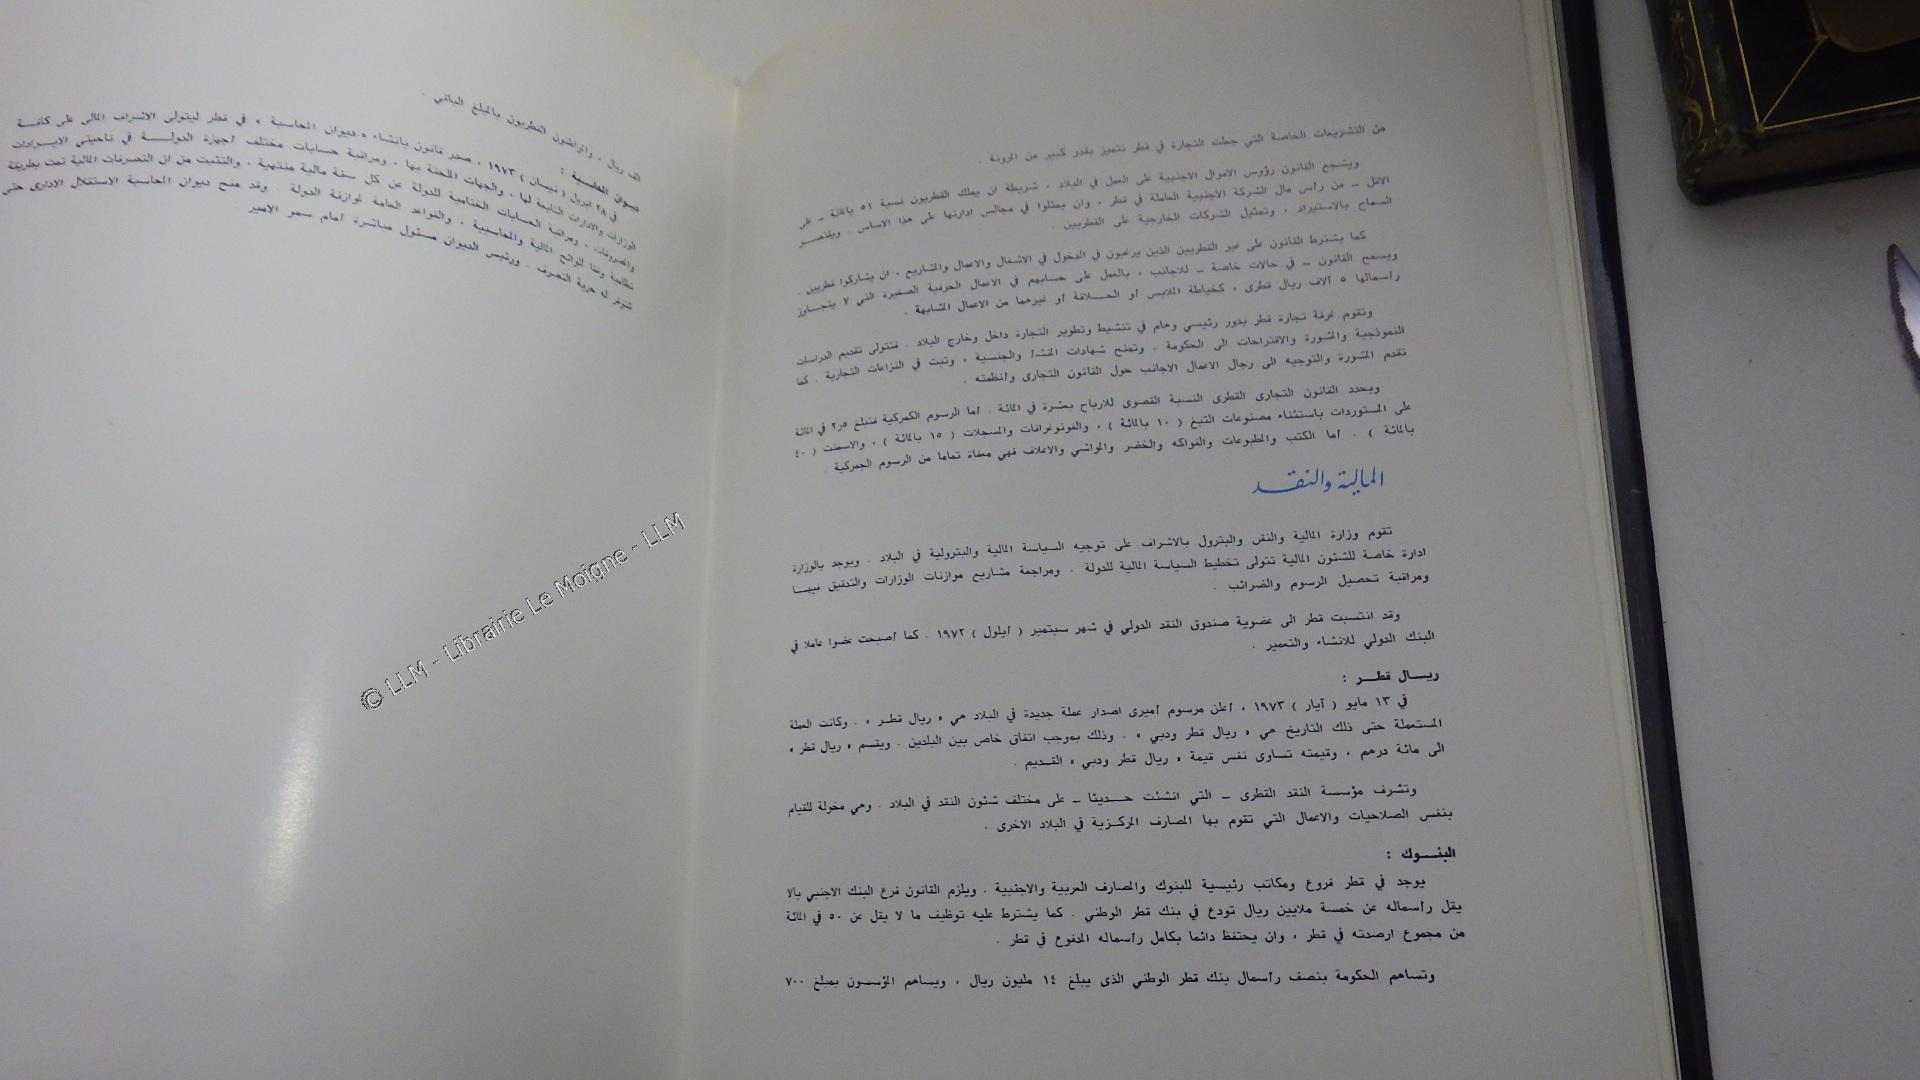 من التشريعات الخاصة التي جعلت التجارة في قطر تتميز بقدر كبير من المرونة .
ويشجع القانون رؤوس الاموال الاجنبية على العمل في البلاد ، شريطة ان يملك القطريون نسبة ٥١ بالمائة – على
الاقل – من رأس مال الشركة الاجنبية العاملة في قطر ، وان يمثلوا في مجالس ادارتها على هذا الاساس . ويقتصر
السماح بالاستيراد ، وتمثيل الشركات الخارجية على القطريين .
كما يشترط القانون على غير القطريين الذين يرغبون في الدخول في الاشغال والاعمال والمشاريع ، ان يشاركوا قطريين .
ويسمح القانون – في حالات خاصة – للاجانب ، بالعمل على حسابهم في الاعمال الحرفية الصغيرة التي لا يتجاوز
رأسمالها ٥ آلاف ريال قطرى ، كخياطة الملابس أو الحلاقة أو غيرهما من الاعمال المشابهة .
وتقوم غرفة تجارة قطر بدور رئيسي وهام في تنشيط وتطوير التجارة داخل وخارج البلاد . فتتولى تقديم الدراسات
النموذجية والمشورة والاقتراحات الى الحكومة . وتمنح شهادات المنشأ والجنسية ، وتبت في النزاعات التجارية . كما
تقدم المشورة والتوجيه الى رجال الاعمال الاجانب حول القانون التجارى وأنظمته .
ويحدد القانون التجارى القطرى النسبة القصوى للارباح بعشرة في المائة . أما الرسوم الكمركية فتبلغ ٢٫٥ في المائة
على المستوردات باستثناء مصنوعات التبغ ( ١٠ بالمائة ) ، والفونوغرافات والمسجلات ( ١٥ بالمائة ) ، والاسمنت ( ٤٠
بالمائة ) . أما الكتب والمطبوعات والفواكه والخضر والمواشي والاعلاف فهي معفاة تماما من الرسوم الجمركية .
المالية والنقد
تقوم وزارة المالية والنقس والبترول بالاشراف على توجيه السياسة المالية والبترولية في البلاد . ويوجد بالوزارة
ادارة خاصة للشئون المالية تتولى تخطيط السياسة المالية للدولة . ومراجعة مشاريع موازنات الوزارات والتدقيق فيها
ومراقبة تحصيل الرسوم والضرائب .
وقد انتسبت قطر الى عضوية صندوق النقد الدولي في شهر سبتمبر ( أيلول ) ١٩٧٢ . كما أصبحت عضوا عاملا في
البنك الدولي للانشاء والتعمير .
ريال قطر :
في ١٣ مايو ( أيار ) ١٩٧٣ ، أعلن مرسوم أميرى اصدار عملة جديدة في البلاد هي « ريال قطر » . وكانت العملة
المستعملة حتى ذلك التاريخ هي « ريال قطر ودبي » . وذلك بموجب اتفاق خاص بين البلدين . ويقسم « ريال قطر »
الى مائة درهم ، وقيمته تساوى نفس قيمة « ريال قطر ودبي » القديم .
وتشرف مؤسسة النقد القطرى – التي انشئت حديثا – على مختلف شئون النقد في البلاد . وهي مخولة للقيام
بنفس الصلاحيات والاعمال التي تقوم بها المصارف المركزية في البلاد الاخرى .
البنوك :
يوجد في قطر فروع ومكاتب رئيسية للبنوك والمصارف العربية والاجنبية . ويلزم القانون فرع البنك الاجنبي بالا
يقل رأسماله عن خمسة ملايين ريال تودع في بنك قطر الوطني . كما يشترط عليه توظيف ما لا يقل عن ٥٠ في المائة
من مجموع ارصدته في قطر ، وان يحتفظ دائما بكامل رأسماله المدفوع في قطر .
وتساهم الحكومة بنصف رأسمال بنك قطر الوطني الذى يبلغ ١٤ مليون ريال ، ويساهم المؤسسون بمبلغ ٧٠٠
الف ريال ، والمواطنون القطريون بالمبلغ الباقي .
ديوان المحاسبة :
في ٢٨ ابريل ( نيسان ) ١٩٧٣ ، صدر قانون بانشاء « ديوان المحاسبة » في قطر ليتولى الاشراف المالى على كافة
الوزارات والادارات التابعة لها ، والجهات الملحقة بها ، ومراقبة حسابات مختلف أجهزة الدولة في ناحيتي الايرادات
والمصروفات ، ومراقبة الحسابات الختامية للدولة عن كل سنة مالية منتهية ، والتثبت من ان التصرفات المالية تمت بطريقة
نظامية وفقا للوائح المالية والمحاسبية ، والقواعد العامة لموازنة الدولة . وقد منح ديوان المحاسبة الاستقلال الادارى حتى
تتوفر له حرية التصرف . ورئيس الديوان مسئول مباشرة أمام سمو الامير
© LLM - Librairie Le Moigne - LLM